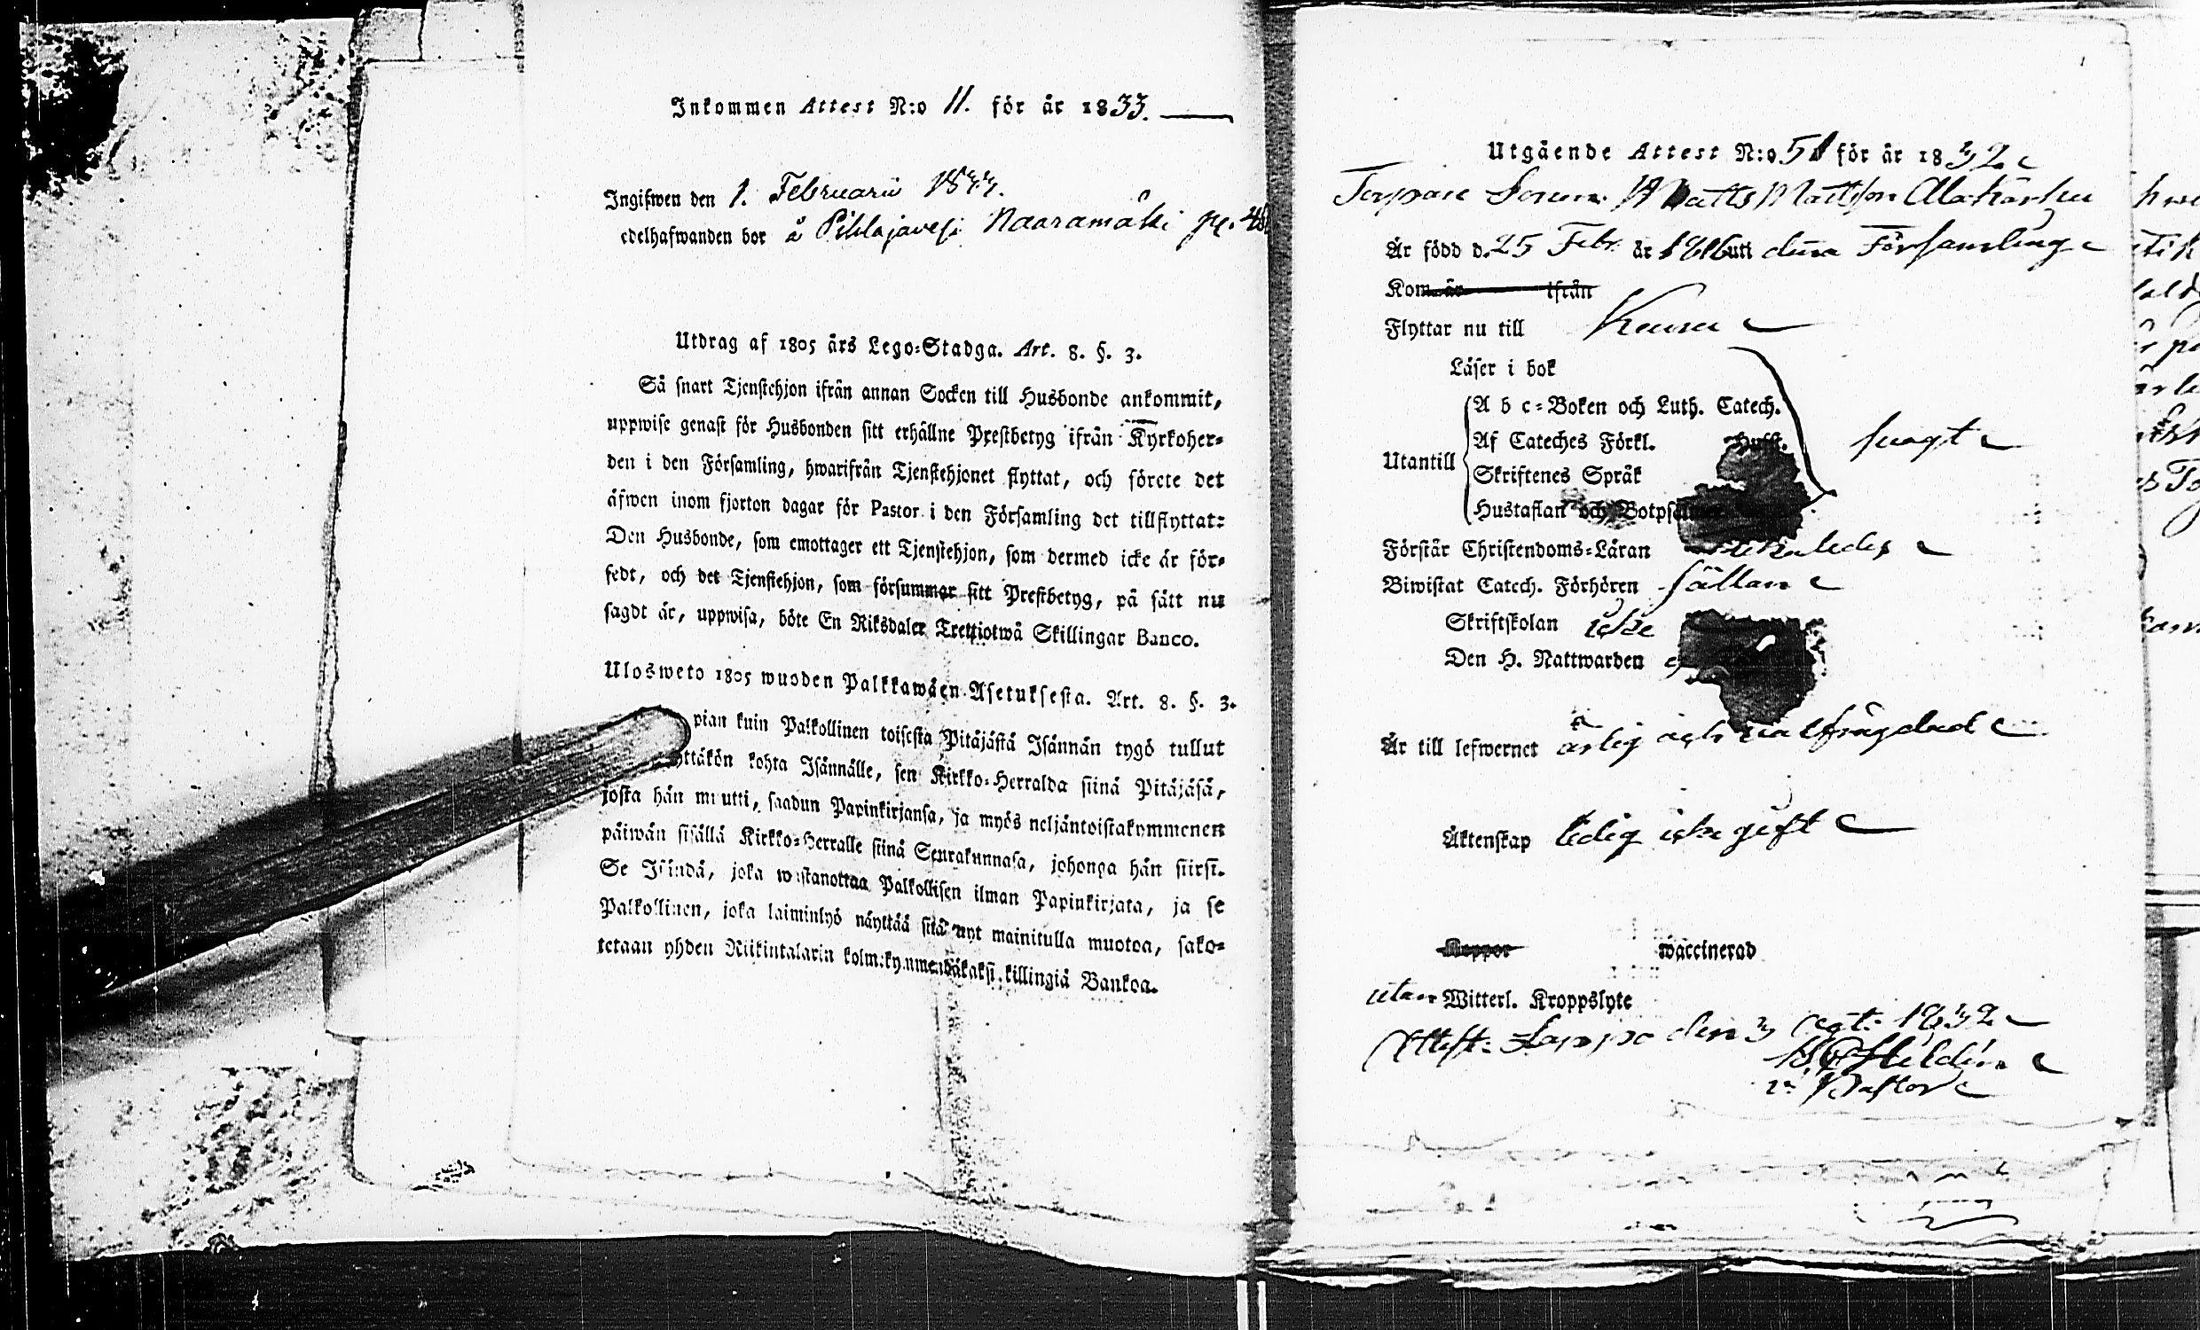 Inkommen Attest N:o 11. för år 1833.
Ingifwen den 1. Februarii 1833.
edelhafwanden bor å Pihlajavesi Naaramäki pg. 48.
Utdrag af 1805 års Lego-Stadga. Art. 8. §. 3.
Så snart Tjenstehjon ifrån annan Socken till Husbonde ankommit,
uppwise genast för Husbonden sitt erhållne Prestbetyg ifrån Kyrkoher-
den i den Församling, hwarifrån Tjenstehjonet flyttat, och förete det
äfwen inom fjorton dagar för Pastor i den Församling det tillflyttat:
Den Husbonde, som emottager ett Tjenstehjon, som dermed icke är för-
sedt, och det Tjenstehjon, som försummar sitt Prestbetyg, på sätt nu
sagdt är, uppwisa, böte En Riksdaler Trettiotwå Skillingar Banco.
Ulosweto 1805 wuoden Palkkawäen Asetuksesta. Art. 8. §. 3.
pian kuin Palkollinen toisesta Pitäjästä Isännän tygö tullut
yttäkön kohta Isännälle, sen Kirkko-Herralda siinä Pitäjäsä,
josta hän muutti, saadun Papinkirjansa, ja myös neljäntoistakymmenen
päiwän sisällä Kirkko-Herralle siinä Seurakunnasa, johonga hän siirsi.
Se Isändä, joka wastanottaa Palkollisen ilman Papinkirjata, ja se
Palkollinen, joka laiminlyö näyttää sitä nyt mainitulla muotoa, sako-
tetaan yhden Riikintalarin kolmekymmendäkaksi killingiä Bankoa.
Utgående Attest N:o 51 för år 1832
Torpare Sonen Matts Mattsson Alakarhu
Är född d. 25 Febr. år 1816 uti denna Församling
Kom år ifrån
Flyttar nu till Keuru
Läser i bok
A b c-Boken och Luth. Catech.
Af Cateches Förkl. Husk.
Utantill
Skriftenes Språk
Hustaflan och Botps
svagt
Förstår Christendoms-Läran
Biwistat Catech. Förhören sällan
Skriftskolan icke
Den H. Nattwarden
Är till lefwernet ärlig och wälfrägdad
Äktenskap ledig icke gift
Koppor waccinerad
utan Witterl. Kroppslyte
Attest. Lappo den 3 1832
v. Pastor